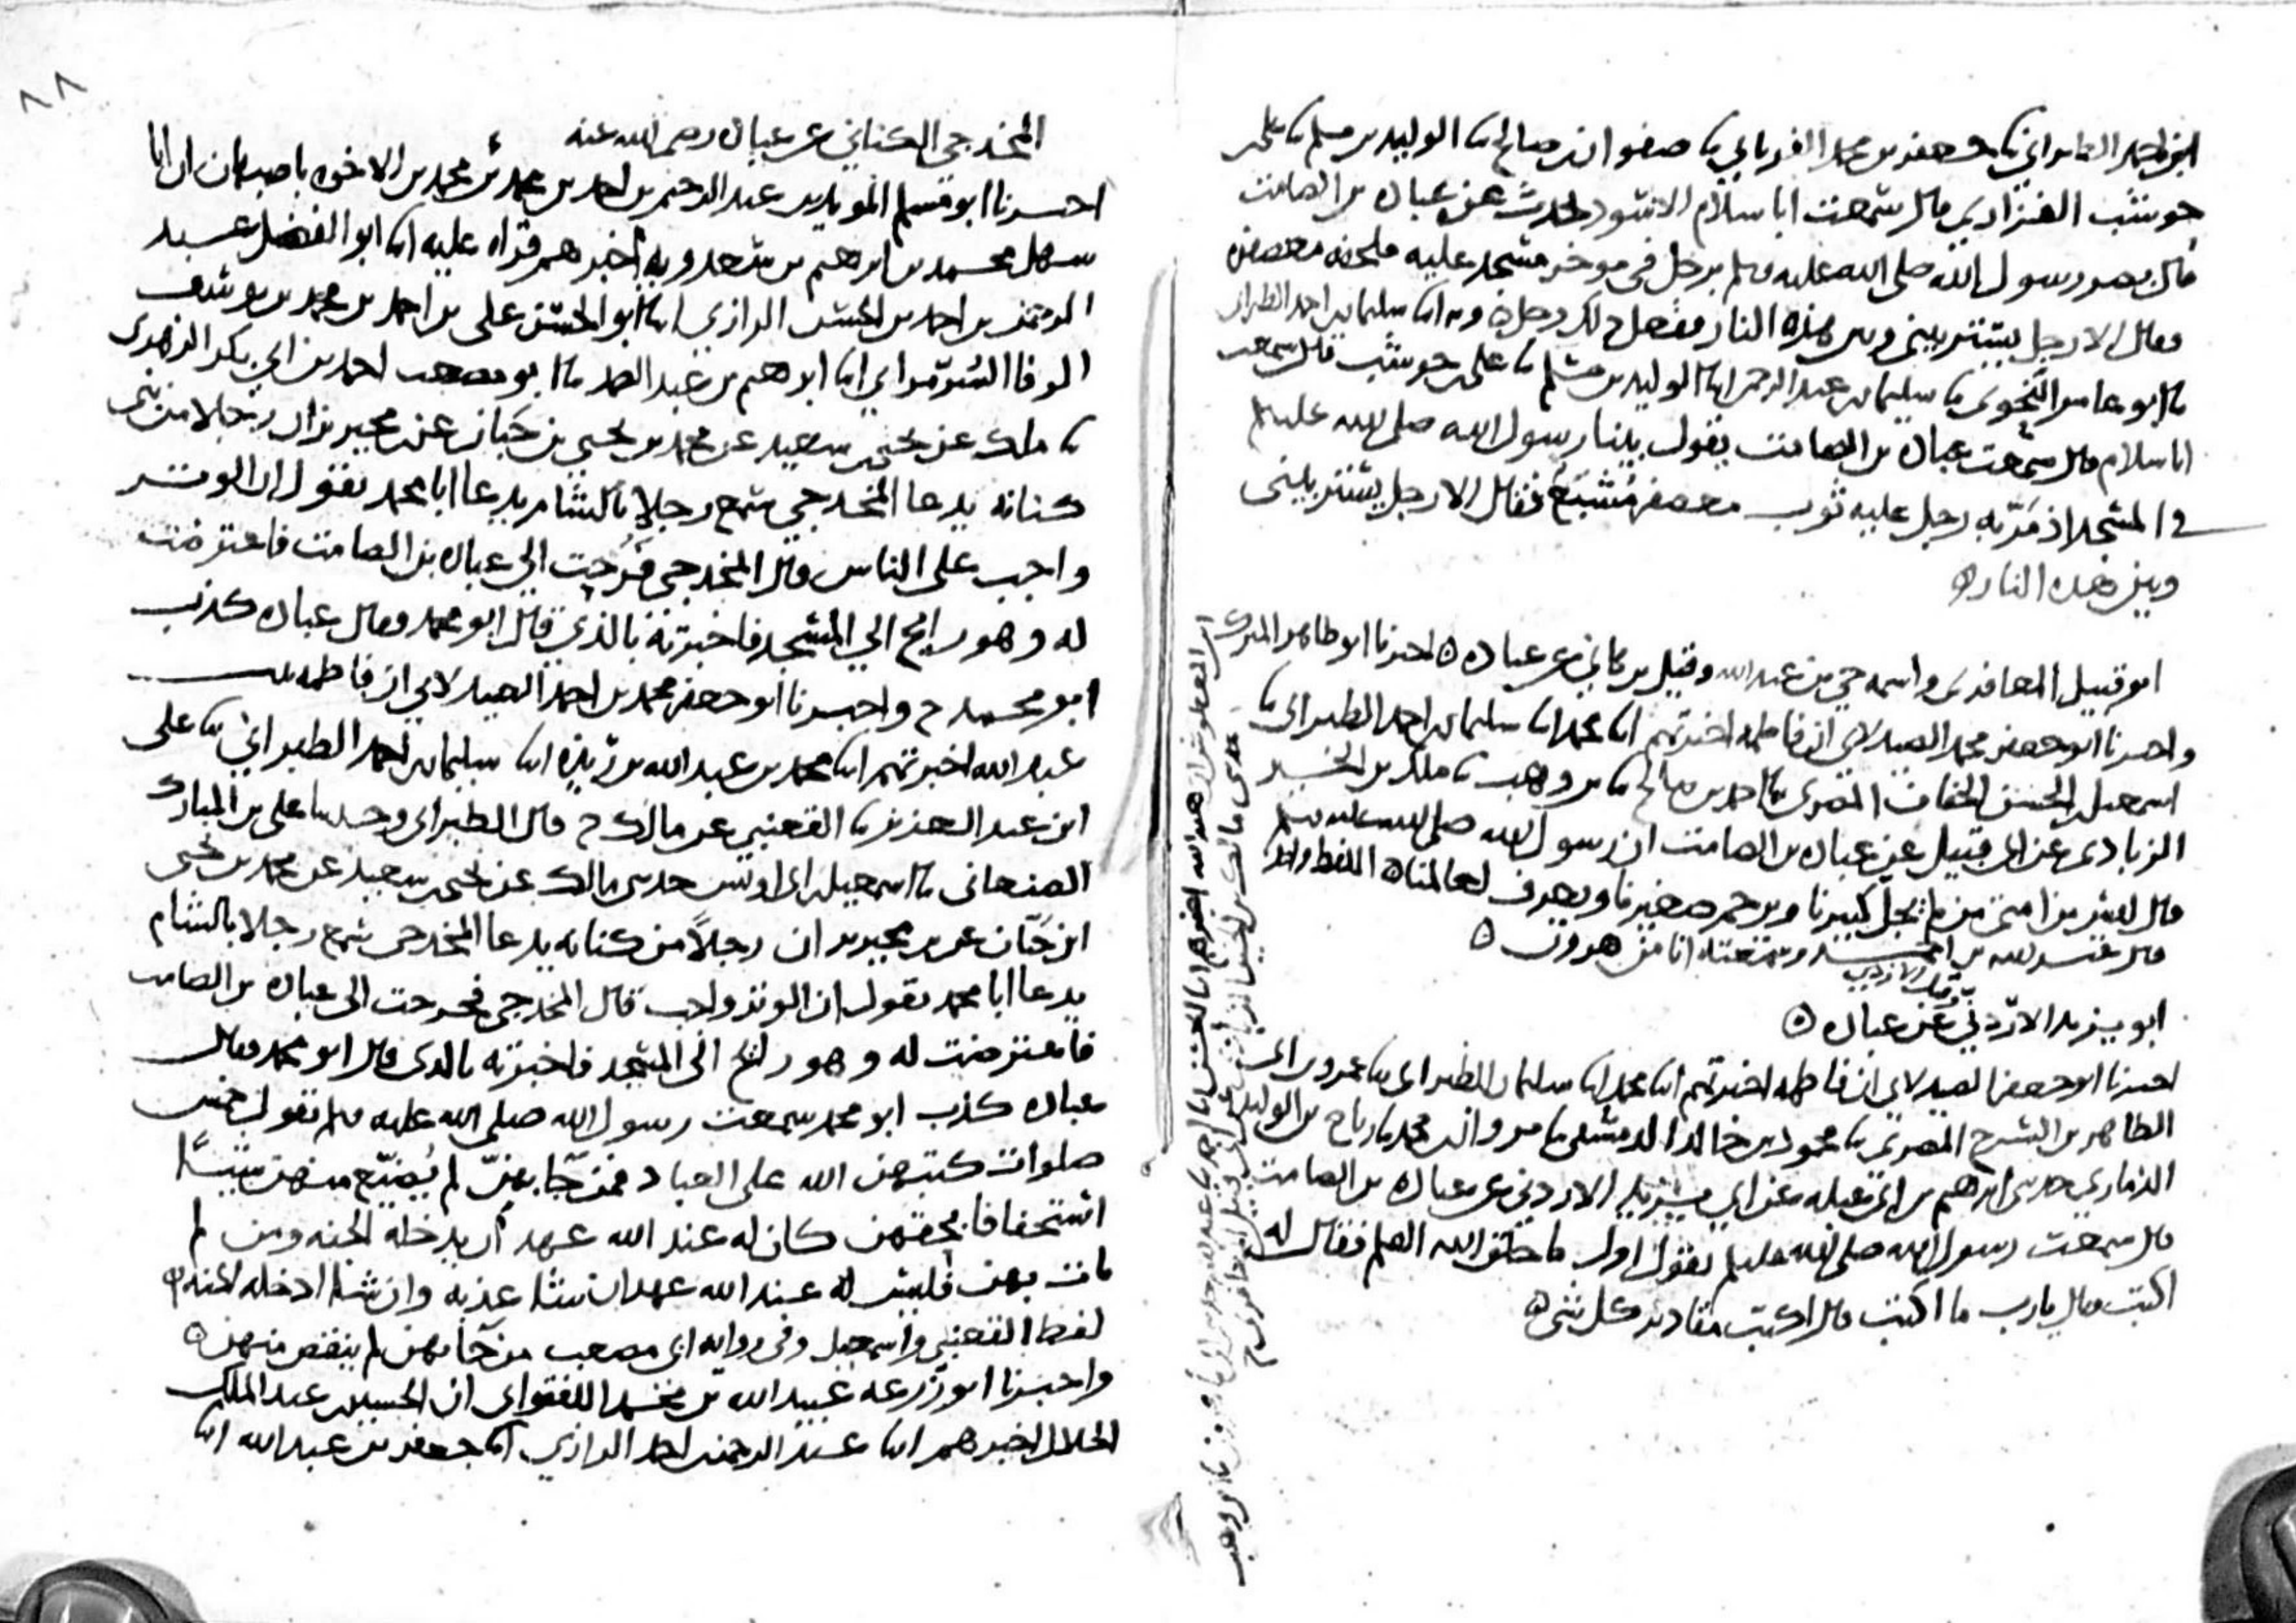 ابن احمد الطبراني ثنا جعفر بن محمد الفريابي ثنا صفوان بن صالح ثنا الوليد بن مسلم ثنا علي بن
حوشب الفزاري قال سمعت ابا سلام الاسود يحدث عن عبادة بن الصامت
قال بصر رسول الله صلى الله عليه وسلم برجل في موخر مسجد عليه ملحفة معصفرة
فقال الا رجل يستر بيني وبين هذه النار ففعل ذلك رجل وبه انا سليمان بن احمد الطبراني
ثنا ابو عامر النحوي ثنا سليمان بن عبد الرحمن ثنا الوليد بن مسلم ثنا علي بن حوشب قال سمعت
ابا سلام قال سمعت عبادة بن الصامت يقول بينا رسول الله صلى الله عليه وسلم
في المسجد اذ مر به رجل عليه ثوب معصفر مشبع فقال الا رجل يستر بيني
وبين هذه النار ه
ابو قبيل المعافري واسمه حي بن عبد الله وقيل بن هاني عن عبادة ه اخبرنا ابو طاهر المبارك
واخبرنا ابو جعفر محمد الصيدلاني ان فاطمة اخبرتهم ابنا محمد ابنا سليمان بن احمد الطبراني ثنا
اسمعيل بن الحسن الخفاف المصري ثنا احمد بن صالح ثنا بن وهب ثنا ملك بن الخير
الزبادي عن ابي قبيل عن عبادة بن الصامت ان رسول الله صلى الله عليه وسلم
قال ليس من امتي من لم يجل كبيرنا ويرحم صغيرنا ويعرف لعالمنا ه اللفظ واحد
قال عبد الله بن احمد وسمعته انا من هرون ه
وقيل الازدي
ابو يزيد الاردني عن عبادة ه
اخبرنا ابو جعفر الصيدلاني ان فاطمة اخبرتهم ابنا محمد ابنا سليمان الطبراني ثنا عمرو بن ابي
الطاهر بن السرح المصري ثنا محمود بن خالد الدمشقي ثنا مروان بن محمد ثنا رباح بن الوليد
الذماري حدثني ابرهيم بن ابي عبلة عن ابي يزيد الاردني عن عبادة بن الصامت
قال سمعت رسول الله صلى الله عليه وسلم يقول اول ما خلق الله القلم فقال له
اكتب فقال يا رب ما اكتب قال اكتب مقادير كل شي ه
٨٨
المخدجي الكناني عن عبادة رضي الله عنه
اخبرنا ابو مسلم المويد بن عبد الرحيم بن احمد بن محمد بن محمد بن الاخوة باصبهان ان ابا
سهل محمد بن ابرهيم بن سعدويه اخبرهم قراة عليه ابنا ابو الفضل عبد
الرحمن بن احمد بن الحسن الرازي ابنا ابو الحسن علي بن احمد بن محمد بن يوسف
ابنا ابرهيم بن عبد الصمد ثنا ابو مصعب احمد بن ابي بكر الزهري
ثنا ملك عن يحيى بن سعيد عن محمد بن يحيى بن حبان عن محيريز ان رجلا من بني
كنانة يدعا المخدجي سمع رجلا بالشام يدعا ابا محمد يقول ان الوتر
واجب على الناس قال المخدجي فرحت الى عبادة بن الصامت فاعترضت
له وهو رايح الى المسجد فاخبرته بالذي قال ابو محمد فقال عبادة كذب
ابو محمد ح واخبرنا ابو جعفر محمد بن احمد الصيدلاني ان فاطمة بنت
عبد الله اخبرتهم ابنا محمد بن عبد الله بن ريذة ابنا سليمان بن احمد الطبراني ثنا علي
ابن عبد العزيز ثنا القعنبي عن مالك ح قال الطبراني وحدثنا علي بن المبارك
الصنعاني ثنا اسمعيل بن ابي اويس حدثني مالك عن يحيى بن سعيد عن محمد بن يحيى
ابن حبان عن بن محيريز ان رجلا من كنانة يدعا المخدجي سمع رجلا بالشام
يدعا ابا محمد يقول ان الوتر واجب قال المخدجي فخرجت الى عبادة بن الصامت
فاعترضت له وهو رايح الى المسجد فاخبرته بالذي قال ابو محمد فقال
عبادة كذب ابو محمد سمعت رسول الله صلى الله عليه وسلم يقول خمس
صلوات كتبهن الله على العباد فمن جا بهن لم يضيع منهن شيئا
استخفافا بحقهن كان له عند الله عهد ان يدخله الجنة ومن لم
يات بهن فليس له عند الله عهد ان شا عذبه وان شا ادخله الجنة ه
لفظ القعنبي واسمعيل وفي رواية ابي مصعب من جا بهن لم ينقص منهن ه
واخبرنا ابو زرعة عبيد الله بن محمد اللفتواني ان الحسين بن عبد الملك
الخلال اخبرهم ابنا عبد الرحمن بن احمد الرازي ابنا جعفر بن عبد الله ابنا